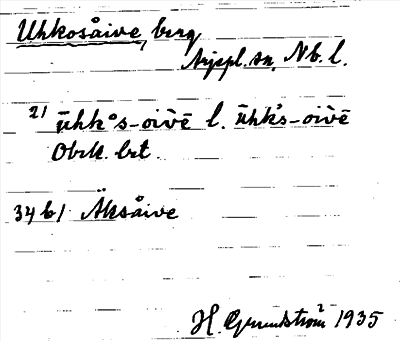 Uhkosåive, berg
Arjepl. sn, Nb. l.
2/ ūhkᵒs-oìvē l. ūhk's-oìvē
Obrk. bet.
34 b/ Äksåive
H. Grundström 1935